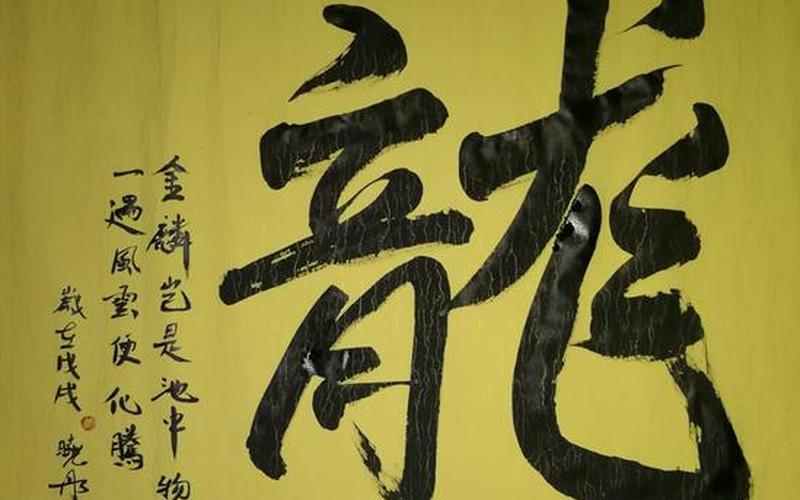 龍
金麟岂是池中物
一遇風雲便化騰
歲在戊戌 曉彤